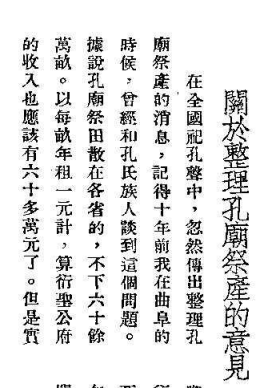 關於整理孔廟祭產的意見
在全國祀孔聲中，忽然傳出整理孔
廟祭產的消息，記得十年前我在曲阜的
時候，曾經和孔氏族人談到這個問題。
據說孔廟祭田散在各省的，不下六十餘
萬畝。以每畝年租一元計，算衍聖公府
的收入也應該有六十多萬元了。但是實